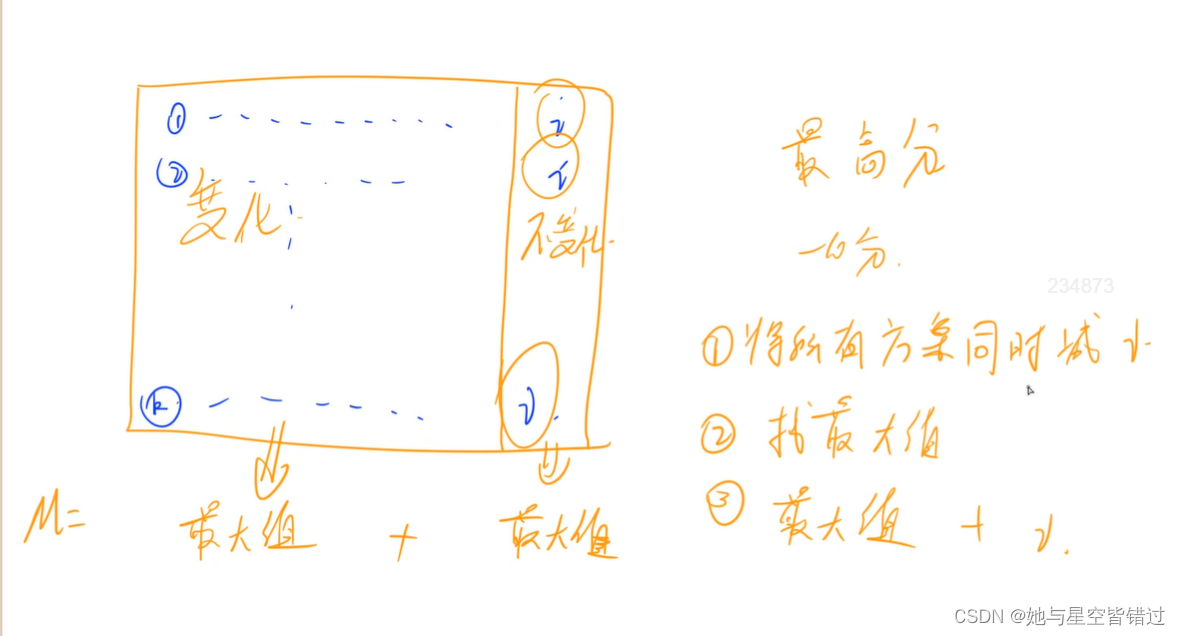 ① i
② i
变化
不变化
k i
M= 最大值 + 最大值
最高分
一的分
①将所有方案同时减 i
② 找最大值
③ 最大值 + i
234873
CSDN @她与星空皆错过